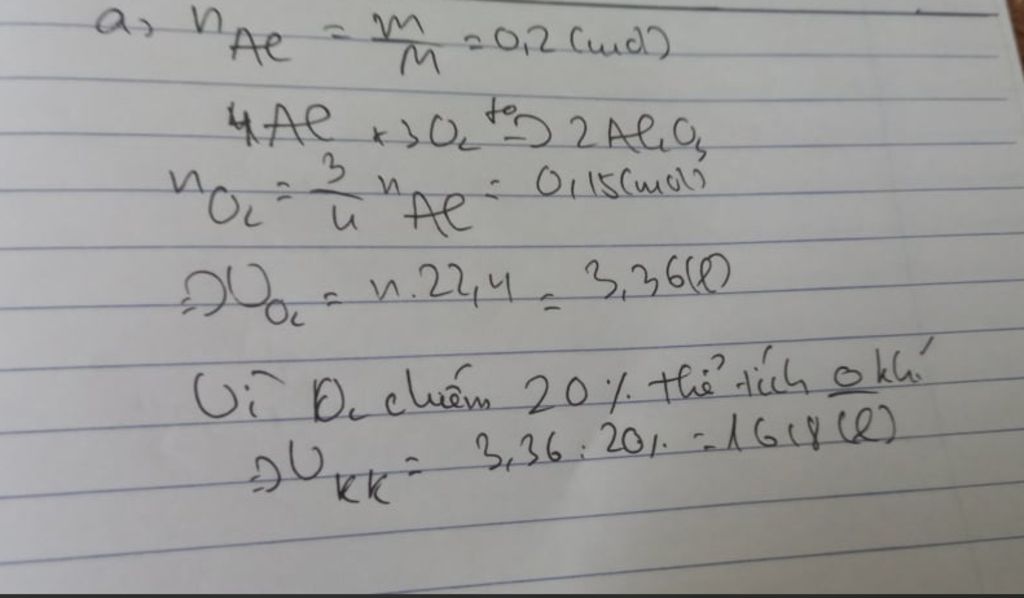 a, n Al = m/M = 0,2 (mol)
4Al + 3O2 t° → 2Al2O3
nO2 = 3/4 nAl = 0,15 (mol)
⇒ VO2 = n.22,4 = 3,36 (l)
Vì O2 chiếm 20% thể tích o khí
⇒ VKK = 3,36 : 20% = 16,8 (l)